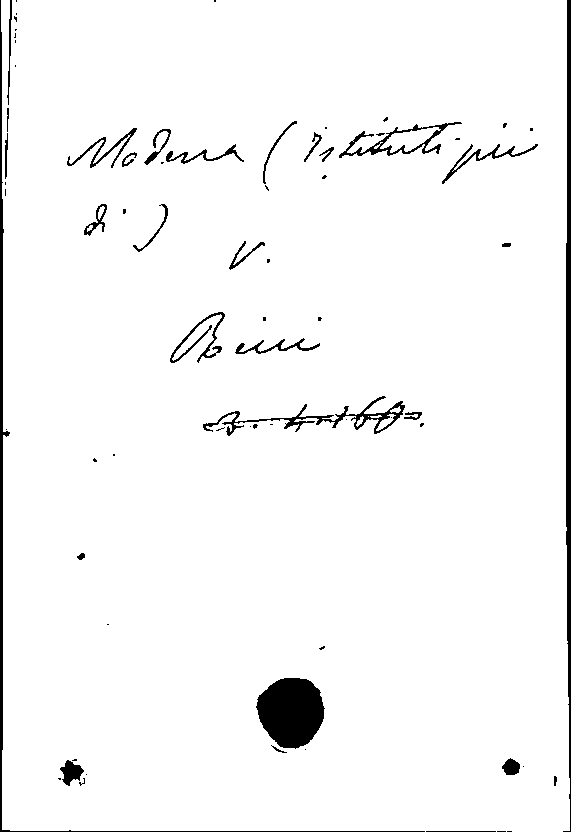 Modena (Istituti pii
di)
V.
Bini
B. 4160.